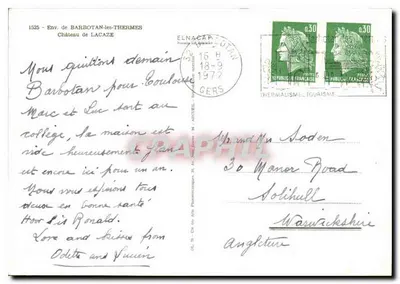 1035 - Env. de BARBOTAN-les-THERMES
Château de LACAZE
ELNACAR
16 H
18-9
1972
GERS
0,30
0,30
REPUBLIQUE FRANCAISE
REPUBLIQUE FRANCAISE
THERMALISME, TOURISME
Nous quittons demain
Barbotan pour Toulouse
Marc et Luc sont au
collège, la maison est
vide heureusement Jean
est encore ici pour un an.
Nous vous espérons tous
deux en bonne santé
How is Ronald.
Love and kisses from
Odette and Lucien
Soden
30 Manor Road
Solihull
Warwickshire
Angleterre